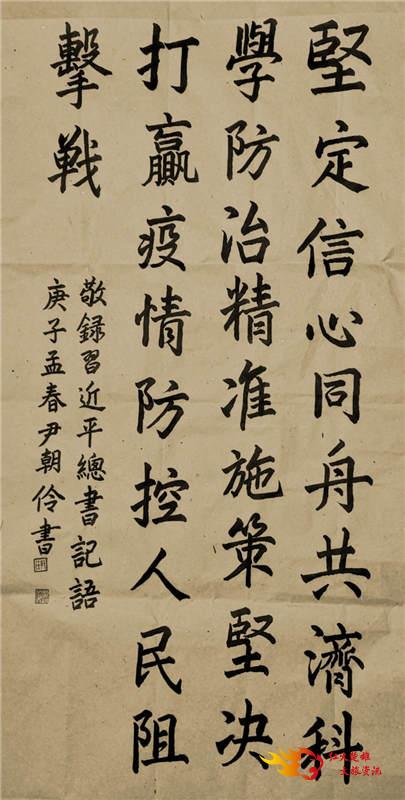 堅定信心同舟共濟科
學防治精准施策堅决
打贏疫情防控人民阻
擊戦
敬録習近平總書記語
庚子孟春尹朝伶書
红火楚雄
文旅资讯